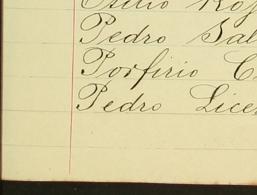 Pedro Sal
Porfirio C
Pedro Lice